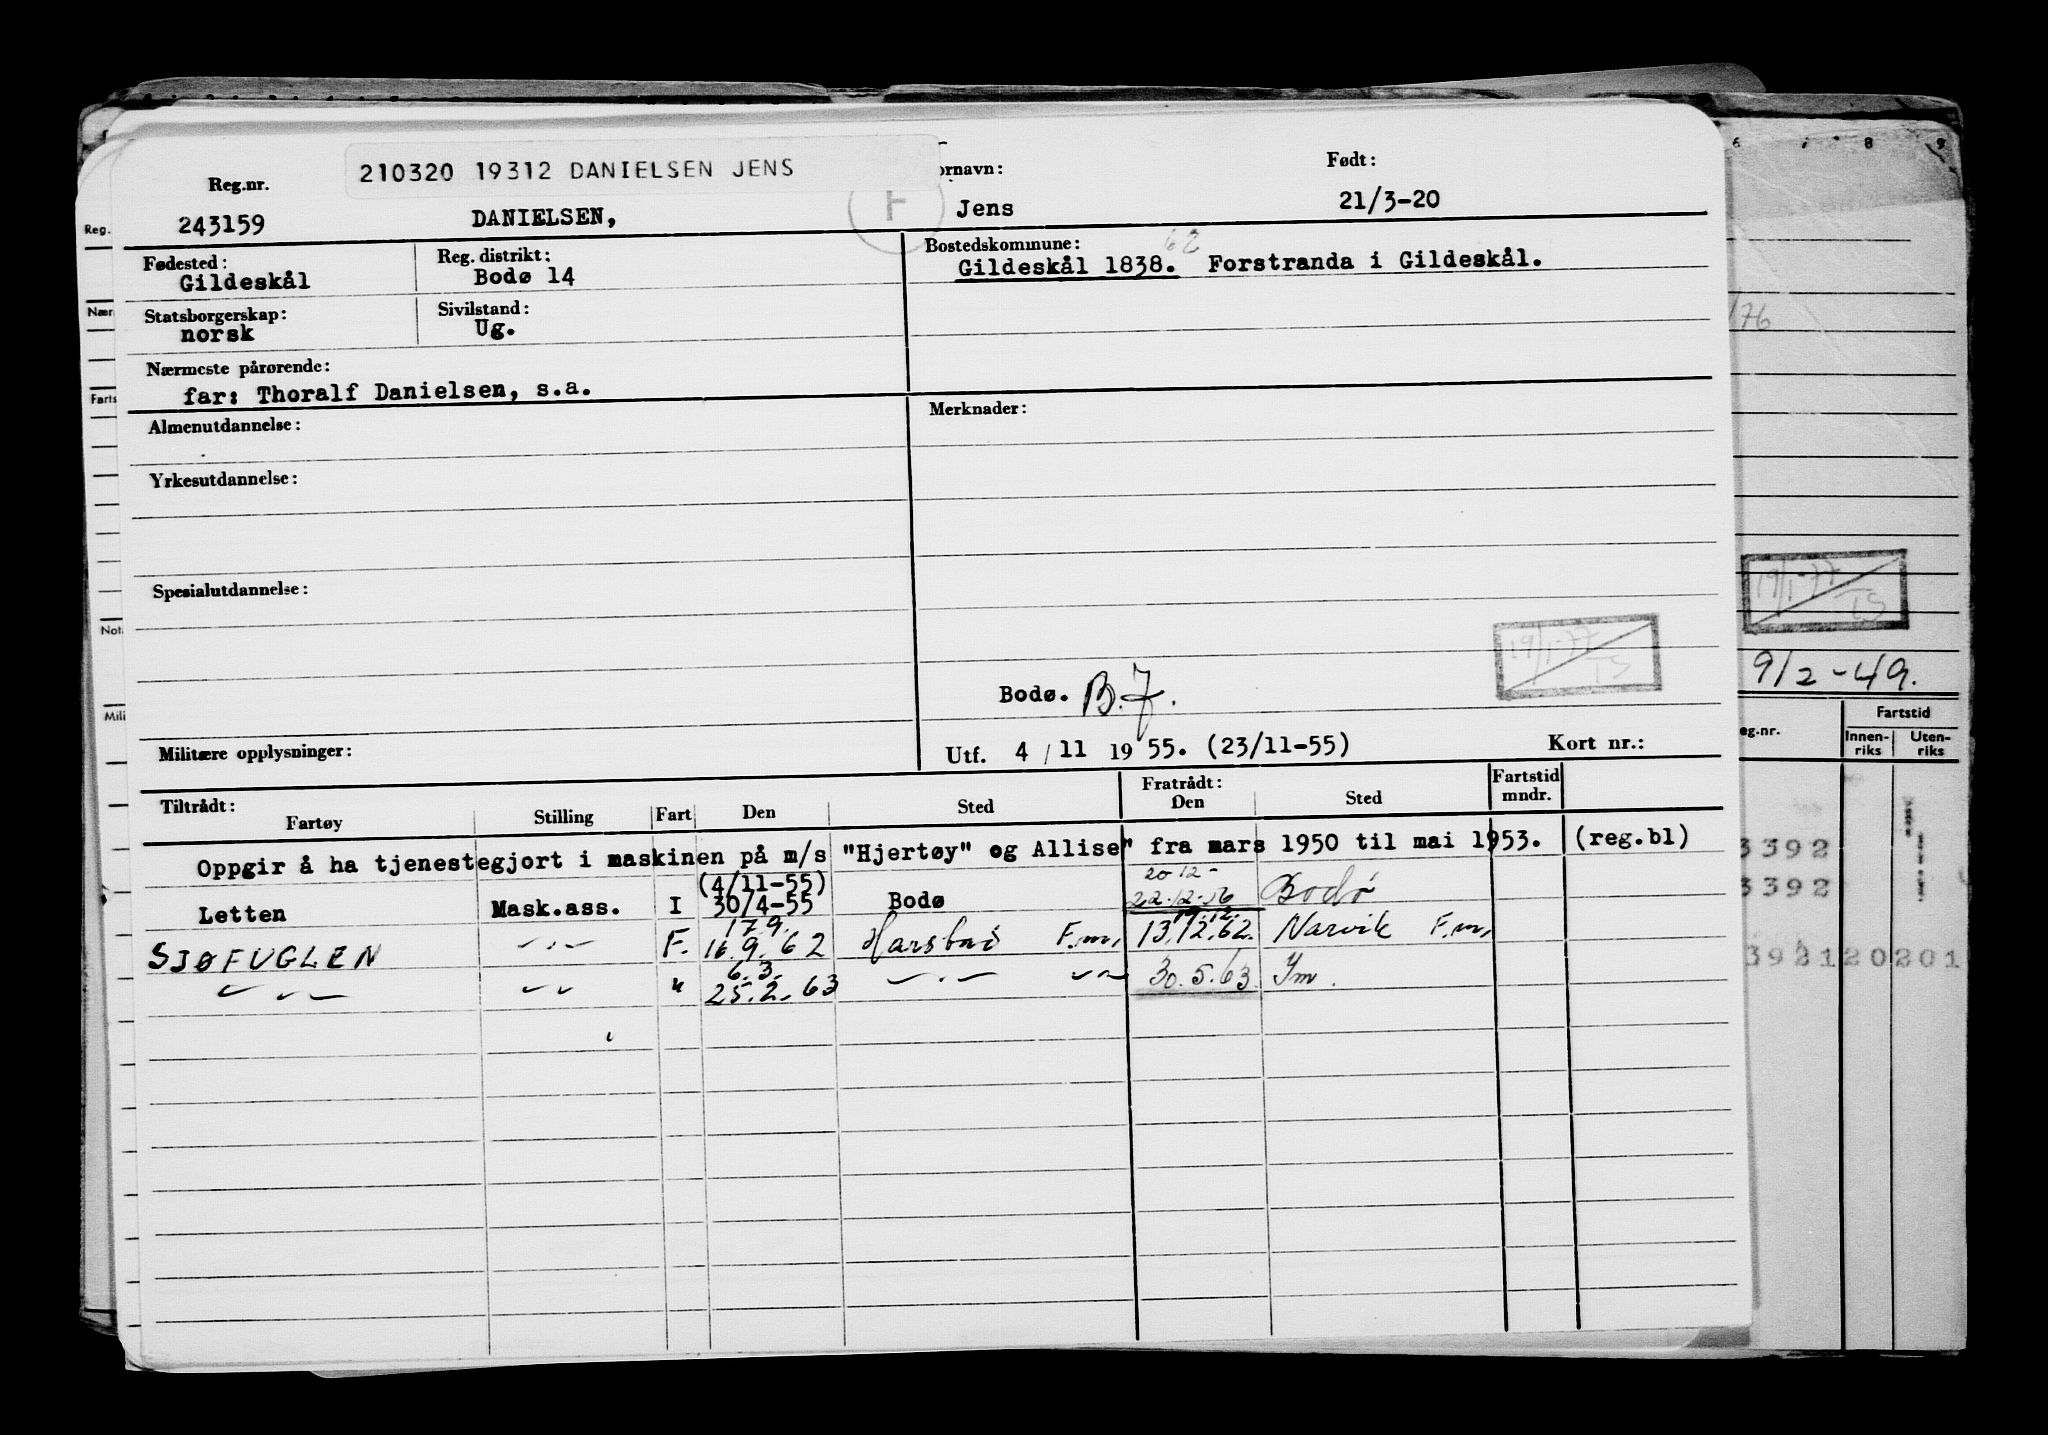 210320 19312 DANIELSEN JENS
Reg.nr. ornavn: Født:
243159 DANIELSEN, F Jens 21/3-20
Fødested: Reg. distrikt: Bostedskommune: 62
Gildeskål Bodø 14 Gildeskål 1838. Forstranda i Gildeskål.
Statsborgerskap: Sivilstand:
norsk Ug.
Nærmeste pårørende:
far: Thoralf Danielsen, s.a.
Almenutdannelse: Merknader:
Yrkesutdannelse:
Spesialutdannelse:
19/1-77
TS
Bodø. B.J.
Militære opplysninger: Utf. 4 / 11 19 55. (23/11-55) Kort nr.:
Tiltrådt: Fratrådt: Fartstid
Fartøy Stilling Fart Den Sted Den Sted mndr.
Oppgir å ha tjenestegjort i maskinen på m/s "Hjertøy" og Allise" fra mars 1950 til mai 1953. (reg.bl)
(4/11-55) 20-12-
Letten Mask.ass. I 30/4-55 Bodø 22.12.56 Bodø
17.9. 19.12.
SJØFUGLEN -"- F. 16.9.62 F.m. 13.12.62. Narvik F.m.
6.3.
-"- -"- " 25.2.63 -"- -"- 30.5.63. Fm.
Reg.
Nær
Farts
Not
Mili
6 7 8 9
/76
19/1-77
TS
9/2-49.
eg.nr. Fartstid
Innen-
riks
Uten-
riks
3392
3392
392120201